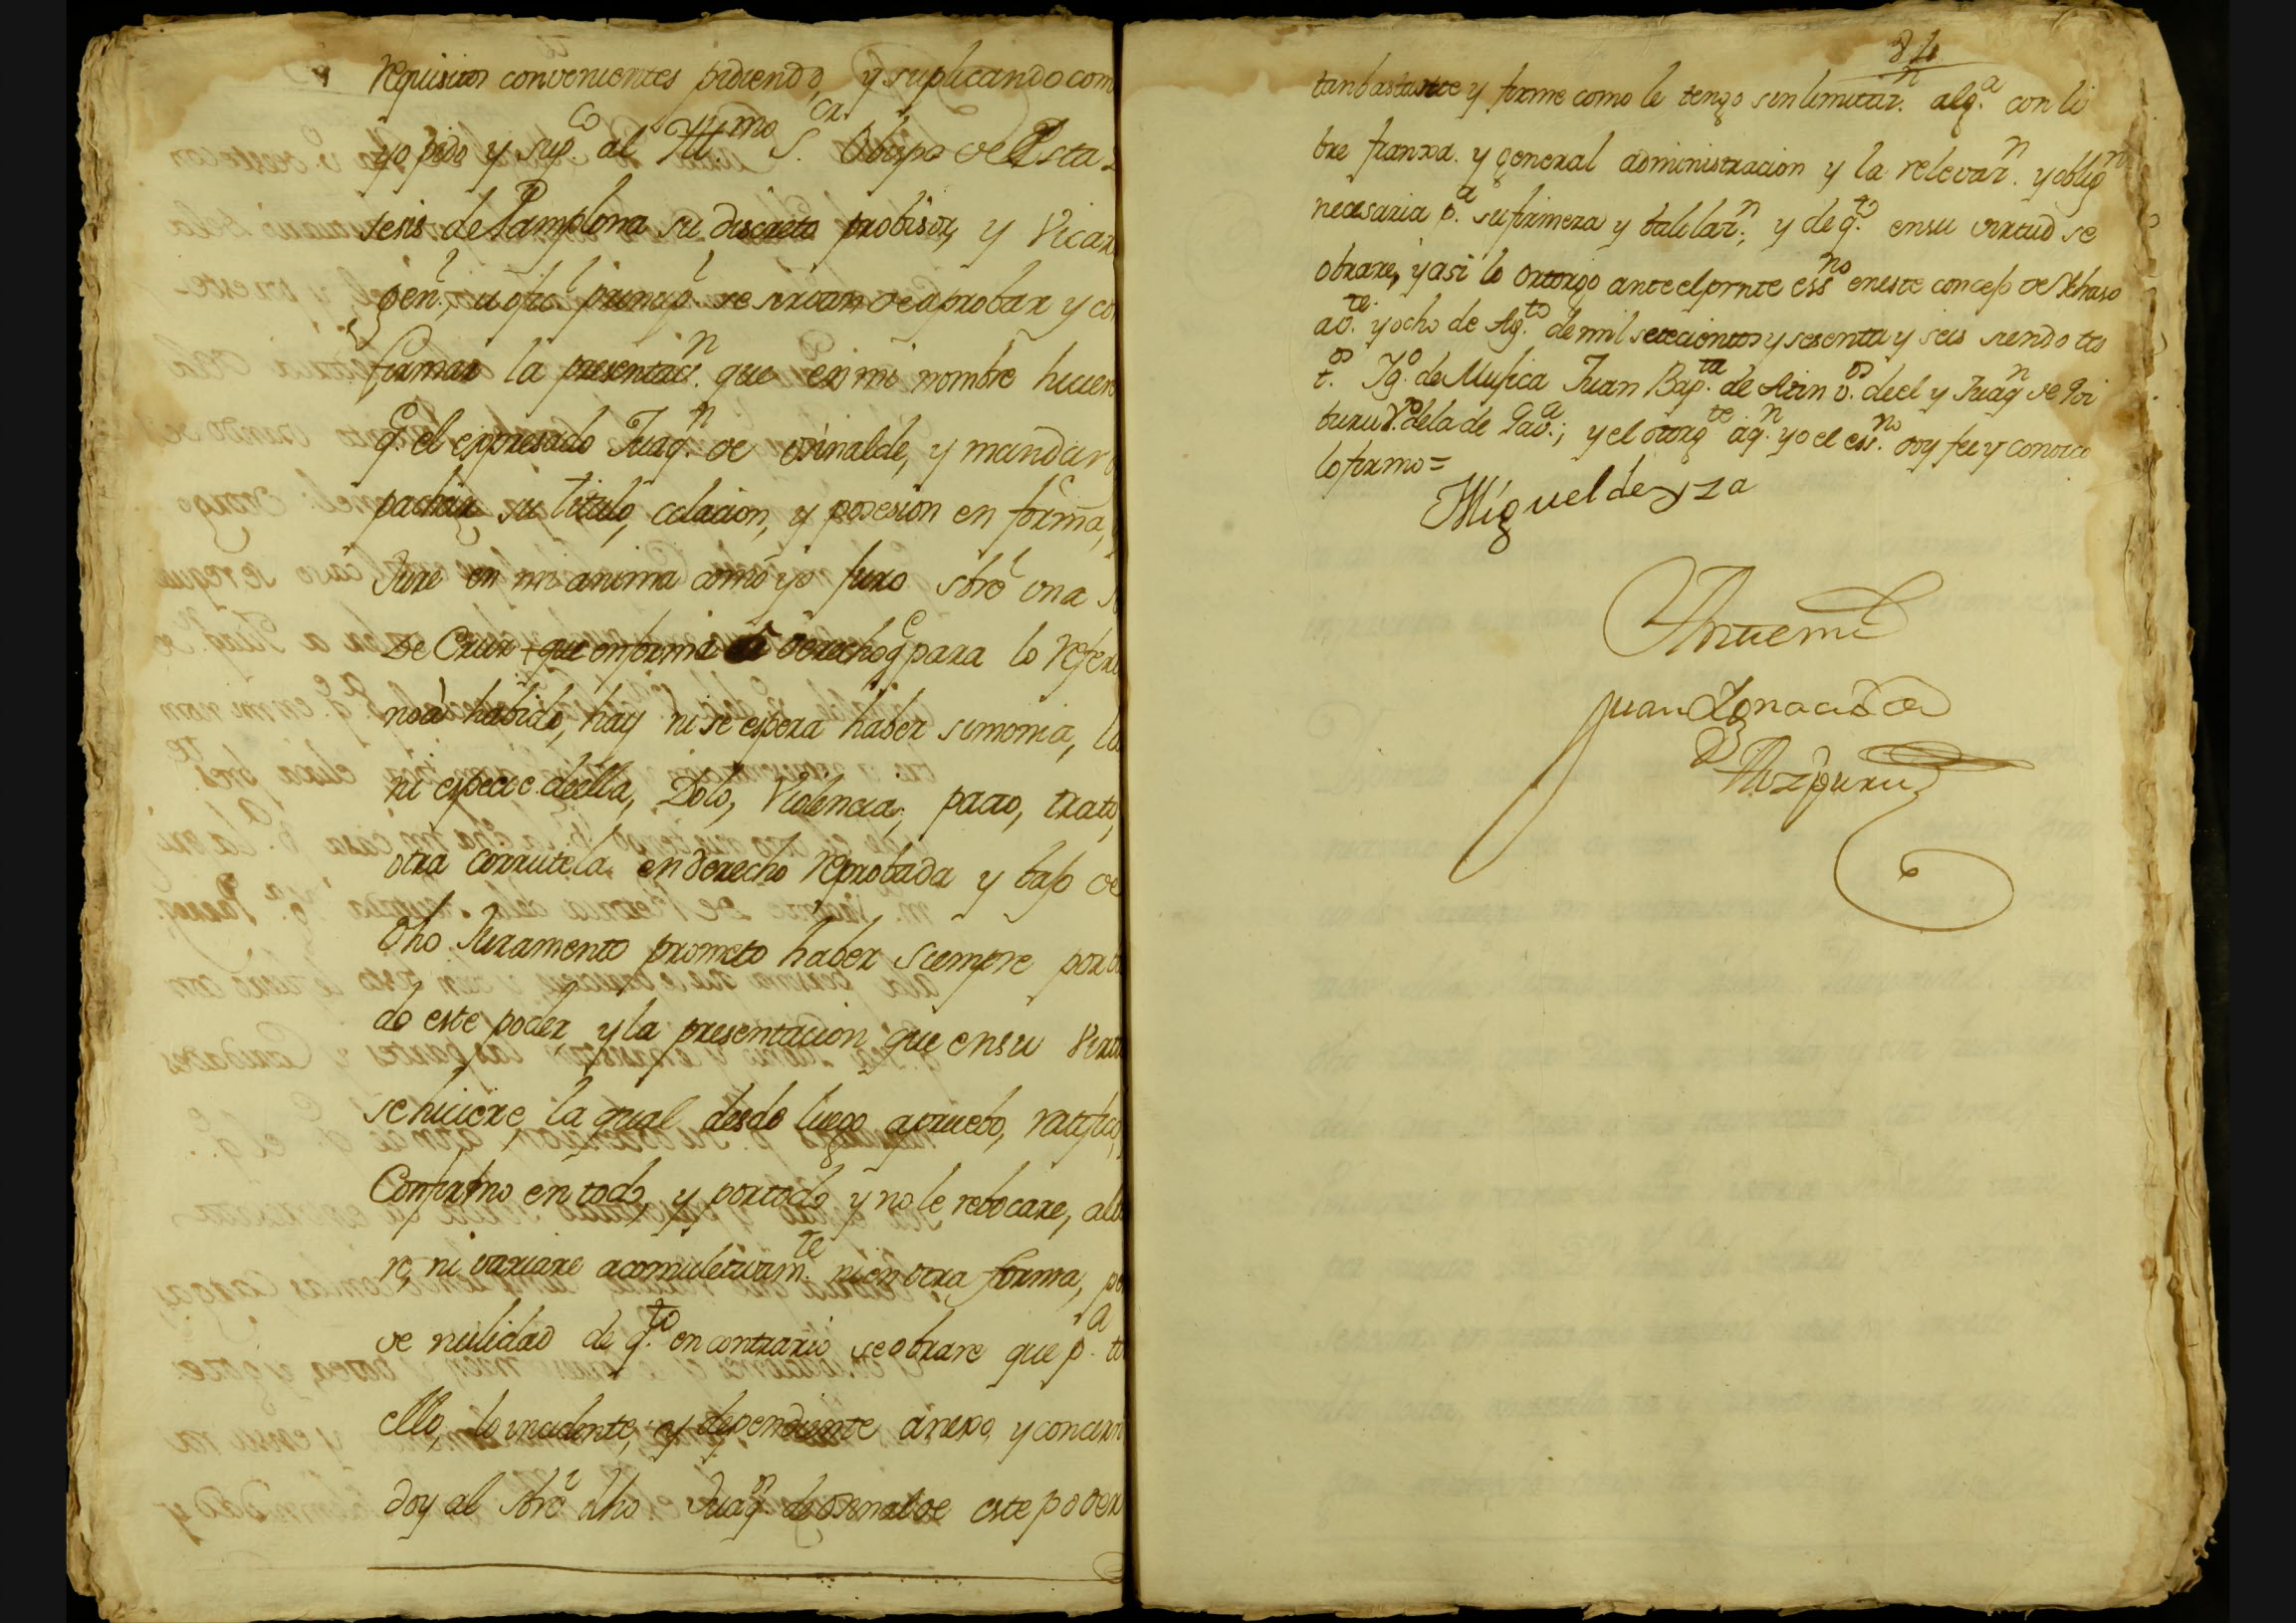 requisitos convenientes pidiendo, y suplicando com
yo pido y sup.co al Ill.mo S.or Obispo de esta
sesis de Pamplona su discreto probisor, y Vicar
gen.l, u ofiz.l princip.l se sirvan de aprobar y con
firmar la presentaz.n que en mi nombre hicier
q.e el expresado Juaq.n de Orinalde, y mandar
pachar su titulo, colacion, y posesion en forma,
Jure en mi anima como yo juro sobre una s
de Cruz + que en forma de derecho q.e para lo refer
no à habido, hay ni se espera haber simonia, la
ni especie de ella, Dolo, Violencia, pacto, trato,
otra corrutela en derecho reprobada y bajo de
dho Juramento prometo haber siempre por
do este poder, y la presentacion que en su Virtu
se hiciere, la qual desde luego apruebo, ratifico,
Confirmo en todo, y por todo y no le rebocare, alt
re, ni variare acomulativam.te ni en otra forma, pe
de nulidad de q.to en contrario se obrare que p.a to
ello, lo incidente, y dependiente anexo, y concern
doy al sobre dho Juaq.n de Orinalde este poder
84
tan bastante y firme como le tengo sin limitaz.n alg.a con li
bre franca y general administracion y la relevaz.n y oblig.n
necesaria p.a su firmeza y balidaz.n, y de q.to en su virtud se
obrare, y asi lo otorgo ante el prnte ess.no en este concejo de Beraso
a v.te y ocho de Ag.to de mil setecientos y sesenta y seis siendo tes
t.os Ig.o de Mugica Juan Bap.ta de Azin v.os de el y Juaq.n de Goi
buru V.o de la de Gav.a; y el otorg.te aq.n yo el ess.no doy fee y conozco
lo firmo =
Miguel de Yza
Antemi
Juan Ignacio de
Aizpuru